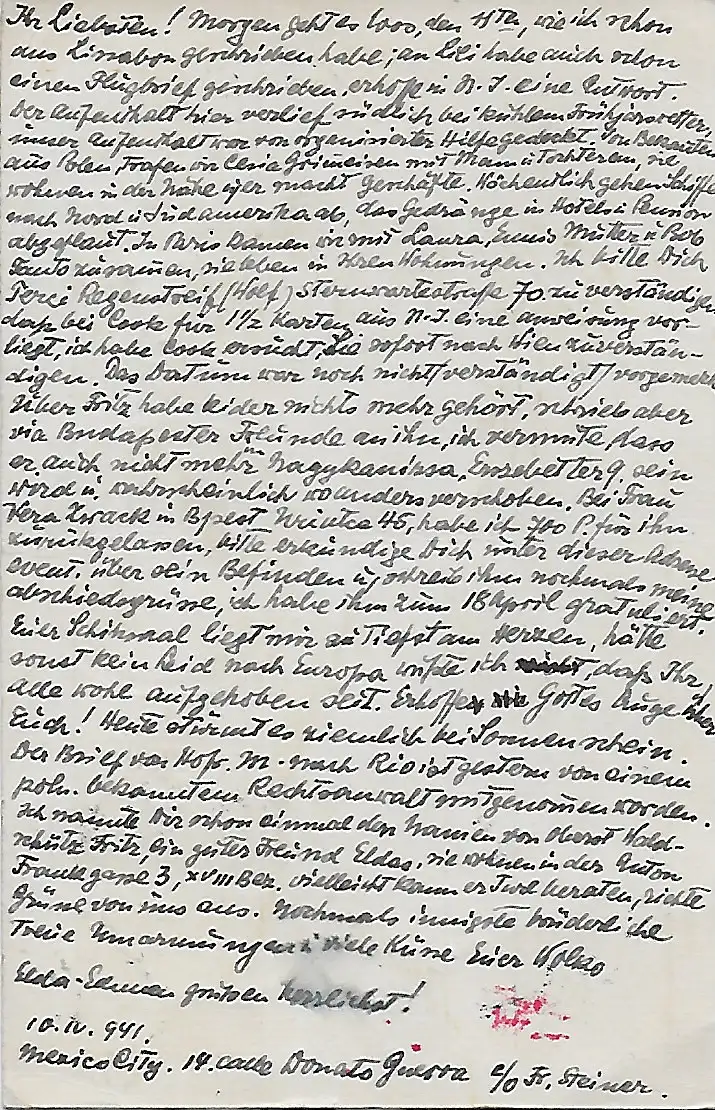 Ihr Liebsten! Morgen geht es loos, den 11ten, wie ich schon
aus Lissabon geschrieben habe; an Lili habe auch schon
einen Flugbrief geschrieben, erhoffe in N.J. eine Antwort.
Der Aufenthalt hier verlief südlich bei kühlem Frühjarswetter,
unser Aufenthalt war von organisierter Hilfe gedeckt. Von Bekannten
aus Polen, trafen wir Cesia mit Mann u Töchtern, sie
wohnen in der Nähe u er macht Geschäfte. Wöchentlich gehen Schiffe
nach Nord u Südamerika ab, das Gedränge in Hotels u Pension
abgeflaut. In Paris kamen wir mit Laura, Mutter u Bob
zusammen, sie leben in Ihren Wohnungen. Ich bitte Dich
Regenstreif (Wolf) Sternwartestraße 70 zu verständigen
daß bei Cook für 1½ Karten aus N.J. eine Anweisung vor-
liegt, ich habe Cook ersucht, Sie sofort nach Wien zu verstän-
digen. Das Datum war noch nicht (verständigt) vorgemerkt
Über Fritz habe leider nichts mehr gehört, schrieb aber
via Budapester Freunde an ihn, ich vermute, dass
er auch nicht mehr in Nagykanizsa, Erzsebetter 9, sein
word u. wahrscheinlich wo anders verschoben. Bei Frau
Vera Zwack in Bpest, 45, habe ich 700 P. für ihn
zurückgelassen, bitte erkundige Dich unter dieser Adresse
event. über sein Befinden u, schreib ihm nochmals meine
abschiedsgrüsse, ich habe ihm zum 18 April gratuliert.
Euer Schiksaal liegt mir zu Tiefst am Herzen, hätte
sonst kein Leid nach Europa wüßte ich, daß Ihr
alle wohl aufgehoben seit. Erhoffe Gottes Auge über
Euch! Heute stürmt es ziemlich bei Sonnenschein.
Der Brief von Hofr. M. nach Rio ist gestern von einem
poln. bekanntem Rechtsanwalt mitgenommen worden.
Ich nannte Dir schon einmal den Namen von Oberst Wald-
schütz Fritz, ein guter Freund Eldas, sie wohnen in der Anton
Frankgasse 3, XVIII Bez. vielleicht kann er beraten, richte
Grüsse von uns aus. Nochmals innigste brüderliche
Treue Umarmungen u viele Küsse Euer Wolko
Elda-Edmea grüssen herzlichst!
10.IV.941.
Mexico City. 14. calle Donato Guerra c/o Fr. Steiner.